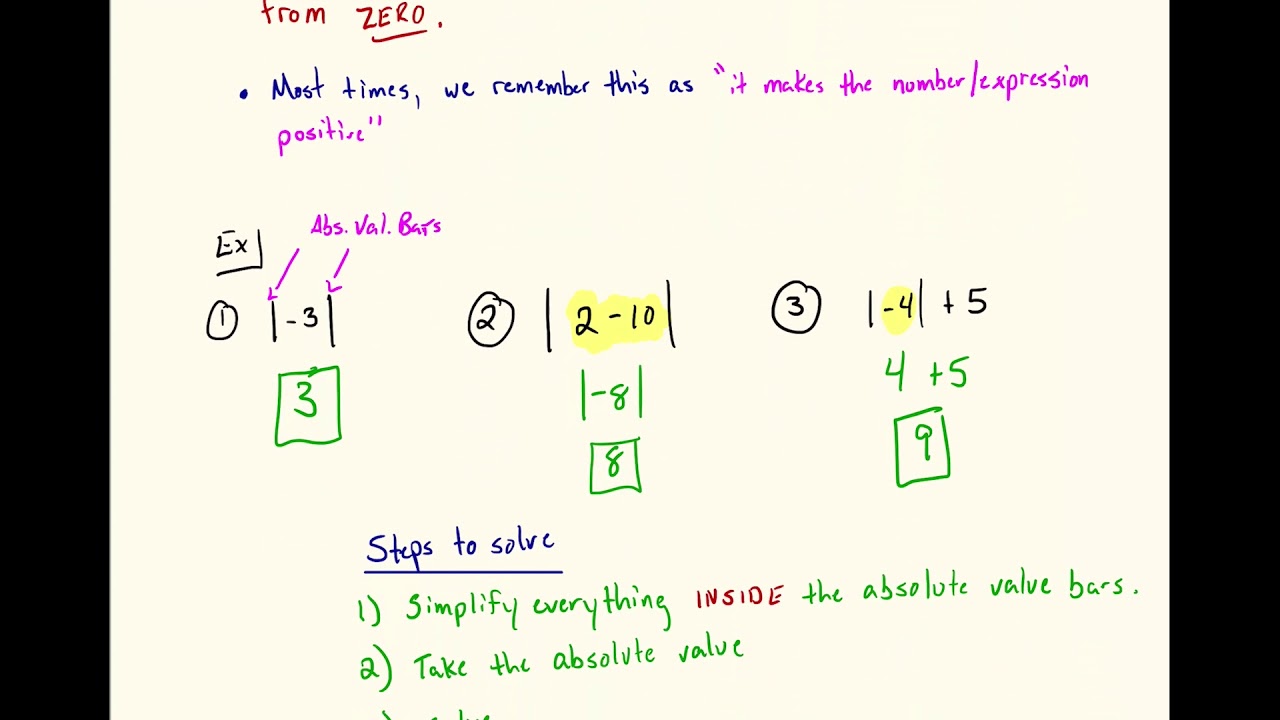 from ZERO.
• Most times, we remember this as "it makes the number/expression
positive"
Ex
Abs. Val. Bars
① |-3|
② |2-10|
③ |-4| + 5
3
|-8|
4 +5
8
9
Steps to solve
1) Simplify everything INSIDE the absolute value bars.
2) Take the absolute value